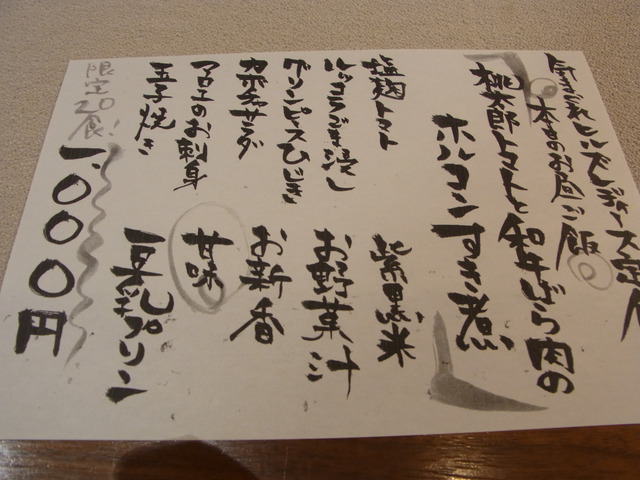 気まぐれヒルズレディース
本日のお昼ご飯
桃太郎トマトと和牛ばら肉の
ホルコンすき煮
塩麹トマト
ルッコラごま浸し
グリンピースひじき
カボチャサラダ
マグロのお刺身
玉子焼き
紫黒米
お野菜汁
お新香
甘味
豆乳プリン
限定20食!
一、〇〇〇円